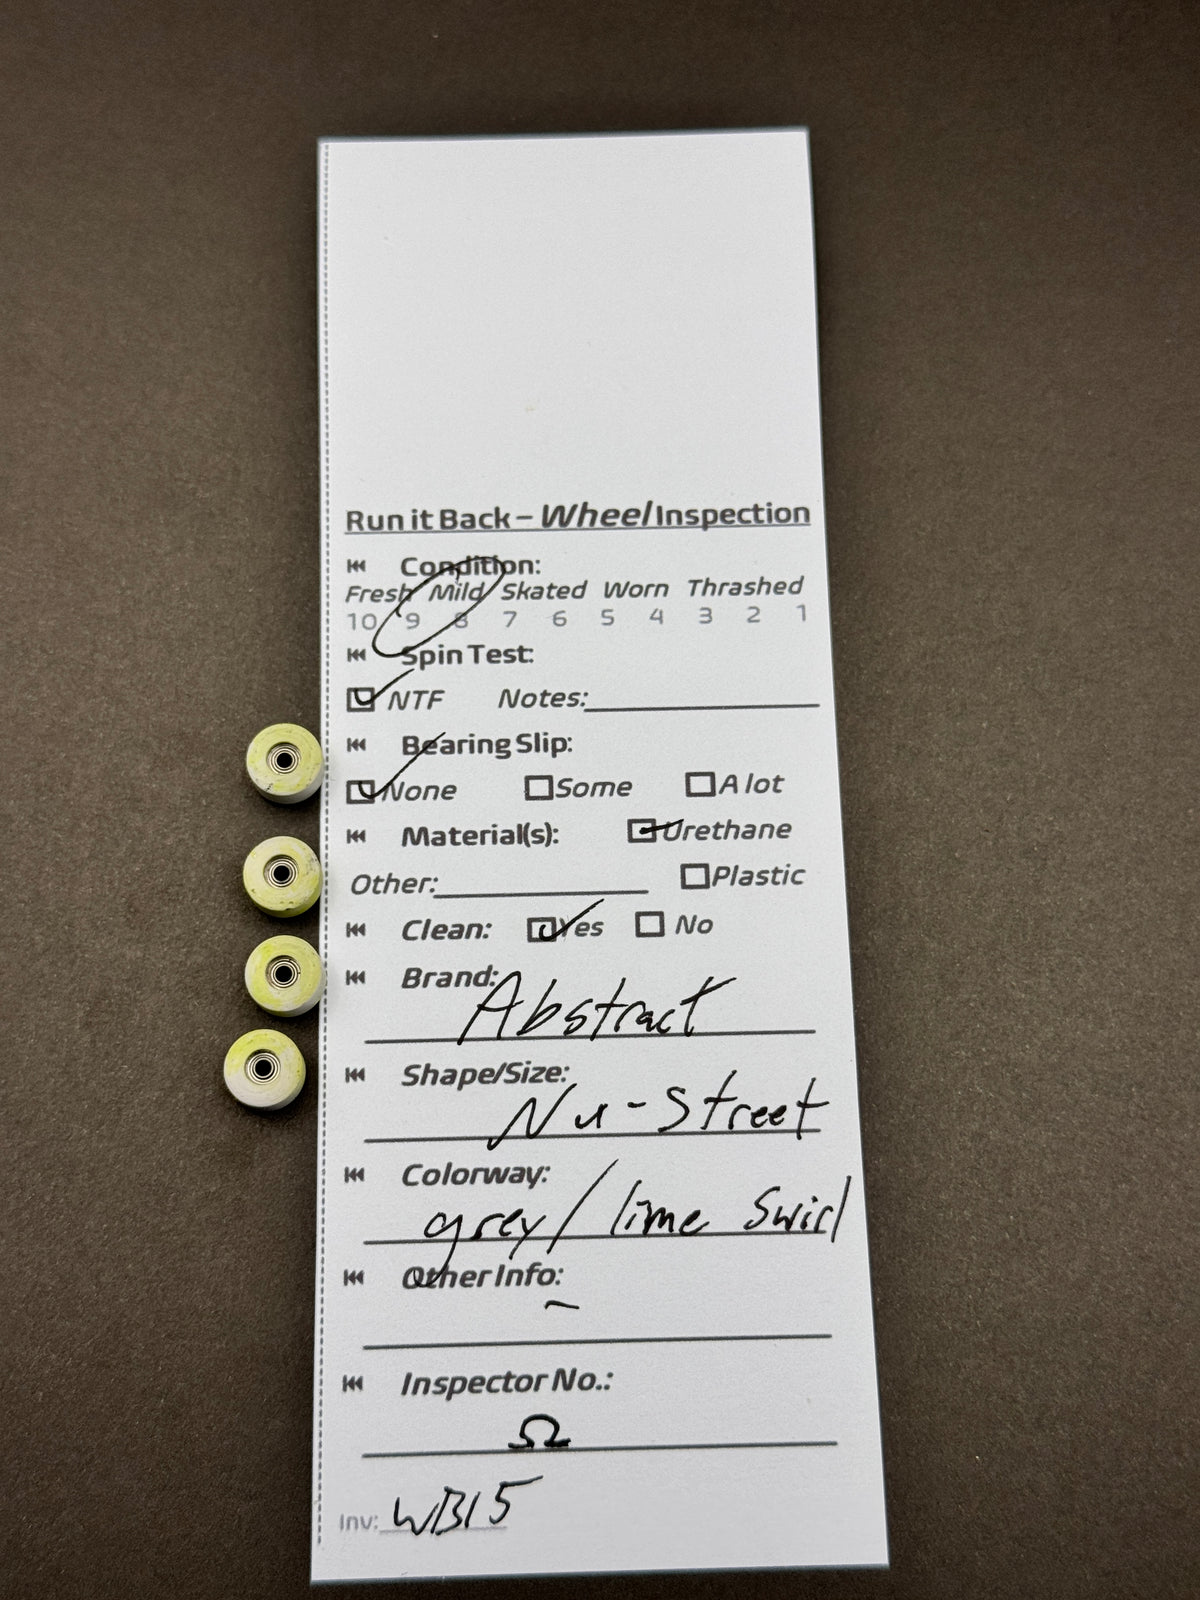 Run it Back – Wheel Inspection
Condition:
Fresh Mild Skated Worn Thrashed
10 9 8 7 6 5 4 3 2 1
Spin Test:
NTF Notes:
Bearing Slip:
None Some A lot
Material(s): Urethane
Other: Plastic
Clean: Yes No
Brand:
Abstract
Shape/Size:
Nu-Street
Colorway:
grey/lime Swirl
Other Info:
~
Inspector No.:
Ω
Inv: WB15